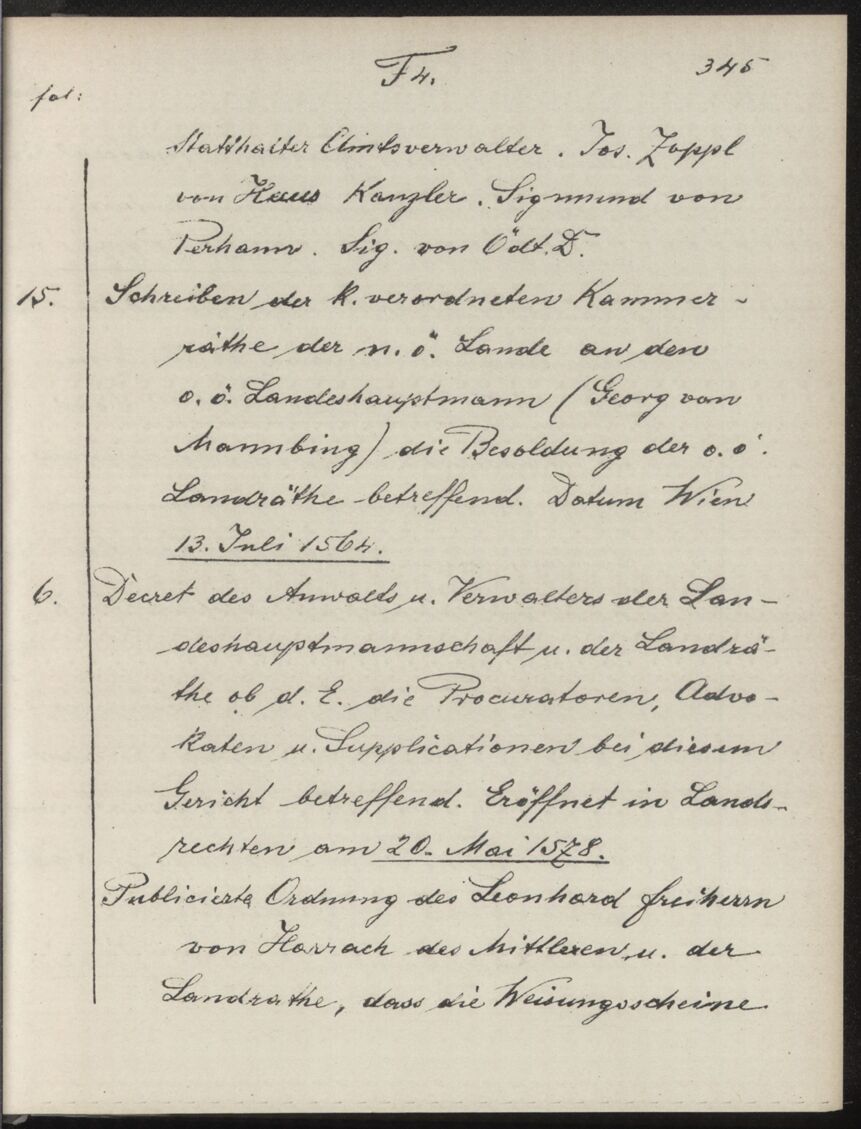 F 4. 345
fol:
Statthalter Amtsverwalter. Jos. Zoppl
von Haus Kanzler. Sigmund von
Perhann. Sig. von Ödt. D.
15. Schreiben der k. verordneten Kammer-
räthe der n. ö. Lande an den
o. ö. Landeshauptmann (Georg von
Mannbing) die Besoldung der o. ö.
Landräthe betreffend. Datum Wien
13. Juli 1564.
6. Decret des Anwalts u. Verwalters der Lan-
deshauptmannschaft u. der Landrä-
the ob d. E. die Procuratoren, Advo-
katen u. Supplicationen bei diesem
Gericht betreffend. Eröffnet in Lands-
rechten am 20. Mai 1578.
Publicierte Ordnung des Leonhard freiherrn
von Harrach des Mittleren u. der
Landrathe, dass die Weisungsscheine